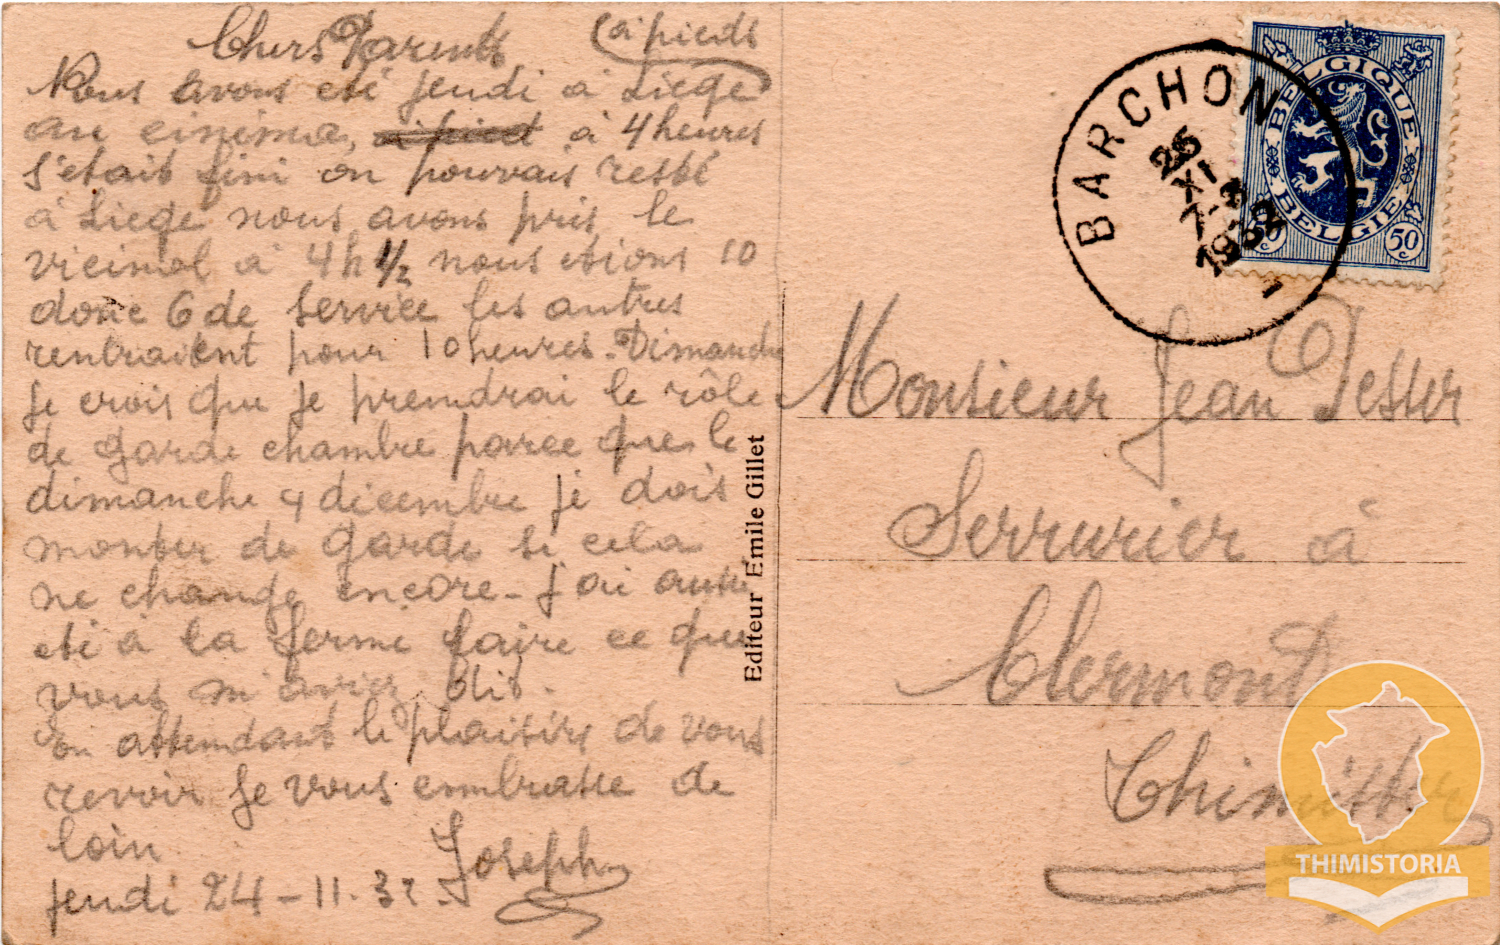 Chers Parents (à pieds
Nous avons eté jeudi à Liège
au cinima, à 4 heures
s'etait fini on pouvais resté
à Liege nous avons pris le
vicimal à 4 h 1/2 nous etions 10
donc 6 de service les autres
rentraient pour 10 heures. Dimanche
je crois que je prendrai le rôle
de garde chambre parce que le
dimanche 4 décembre je dois
monter de garde si cela
ne change encore - j'ai aussi
eté à la ferme faire ce que
vous m'aviez dit.
en attendant le plaisirs de vous
revoir je vous embrasse de
loin Joseph
jeudi 24-11-32.
Editeur Emile Gillet
BARCHON
26
XI
1932
BELGIQUE
BELGIE
50c
50c
Monsieur Jean Tesser
Serrurier à
Clermont
Thimister
THIMISTORIA